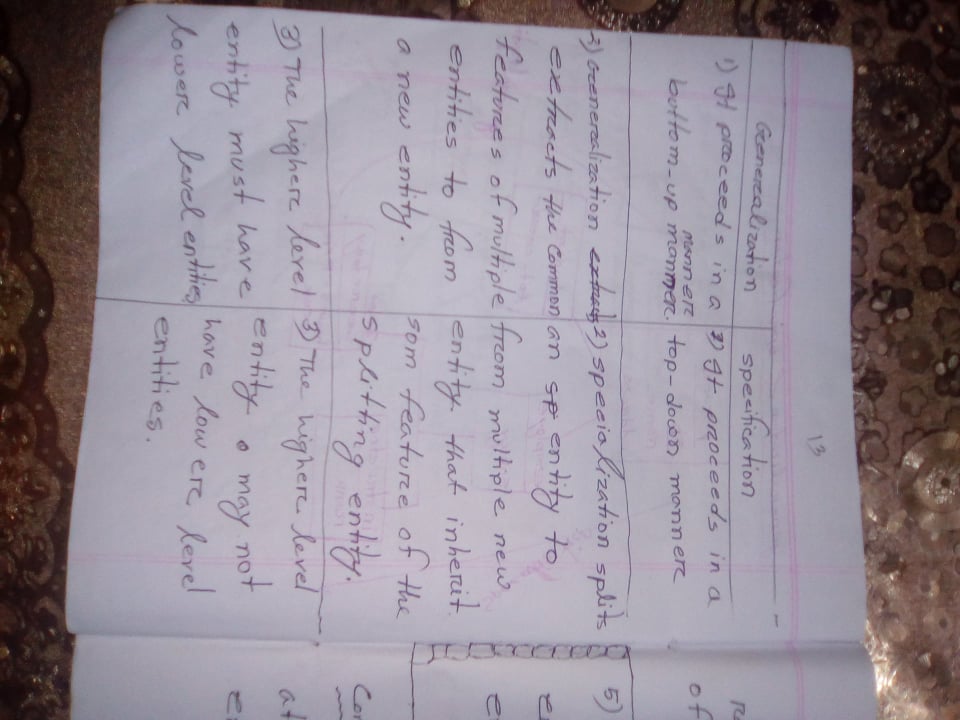 13
Generalization
specification
1) It proceeds in a
manner
bottom-up manner.
1) It proceeds in a
top-down manner
2) Generalization extracts
extracts the common
features of multiple
entities to from
a new entity.
2) specialization splits
an sp entity to
from multiple new
entity that inherit
som feature of the
splitting entity.
3) The higher level
entity must have
lower level entities
3) The higher level
entity may not
have lower level
entities.
of
5)